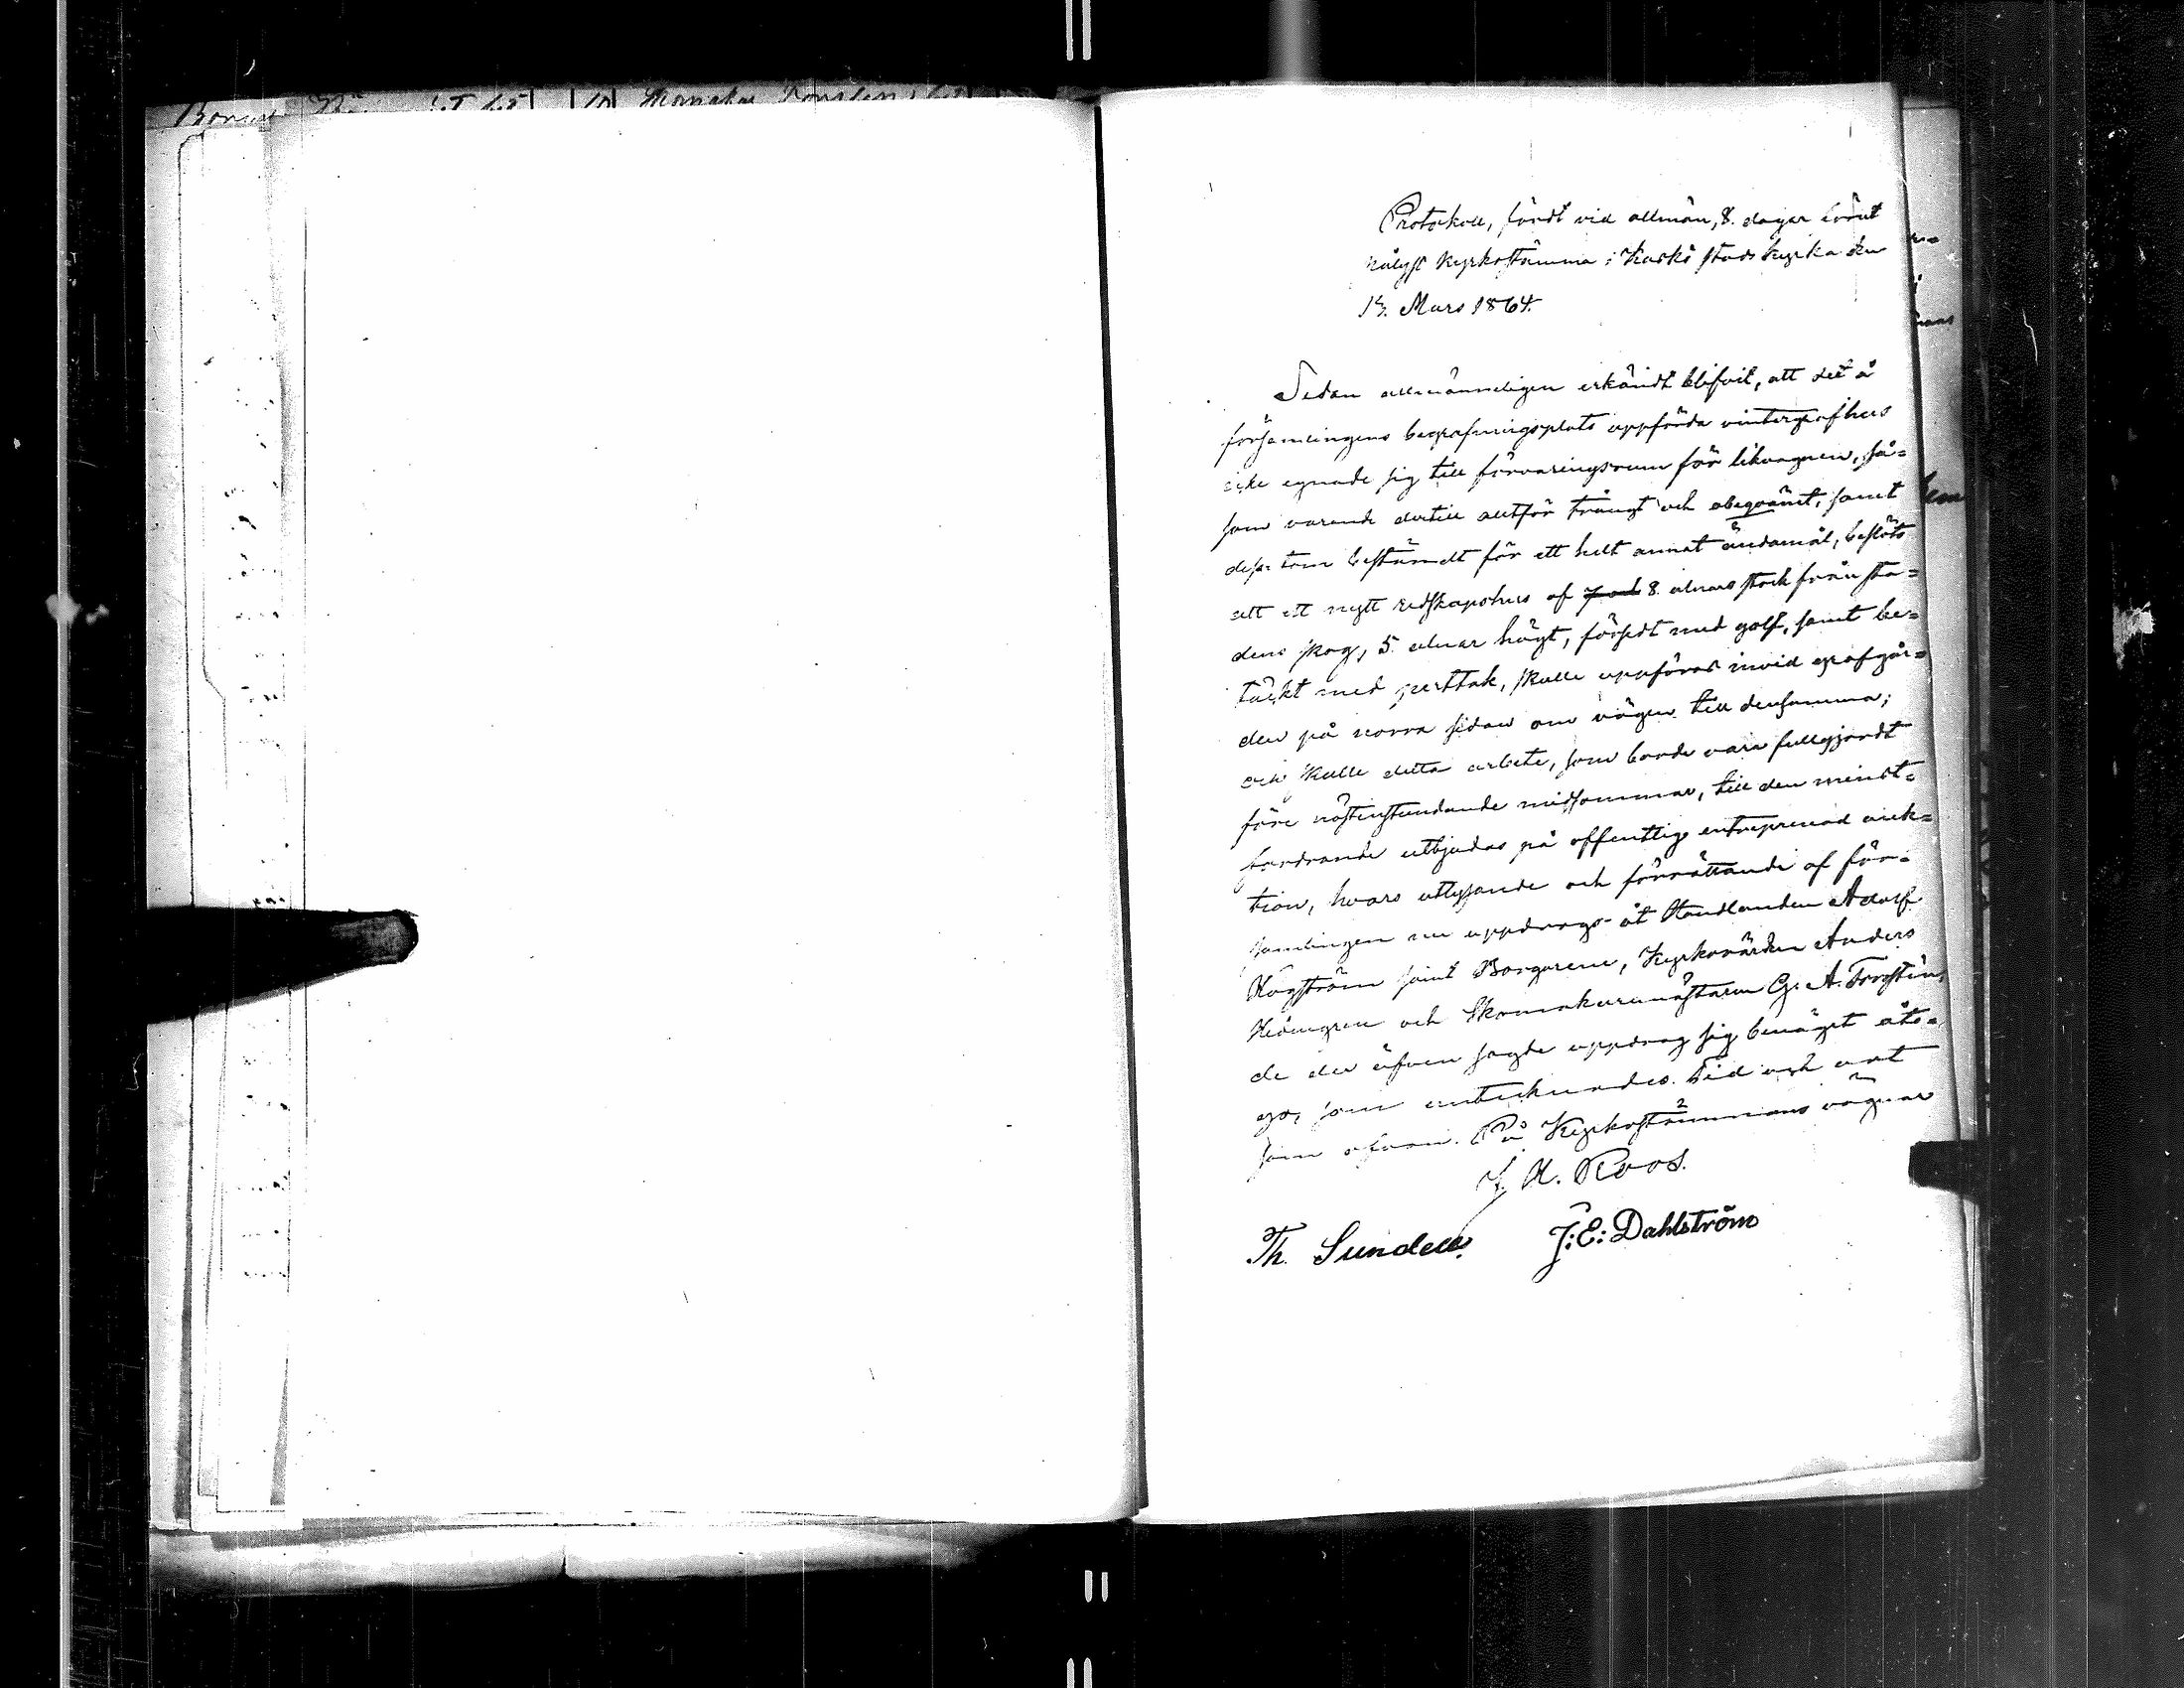 Protokoll, fördt vid allmän, 8. dagar förut
pålyst Kyrkostämma i Kaskö stads kyrka den
13. Mars 1864.
Sedan allmänneligen erkändt blifvit, att det å
församlingens begrafningsplats uppförda vintergrafhus
icke egnade sig till förvaringsrum för likvagnen, så=
som varande dertill alltför trångt och obeqvämt, samt
dessutom bestämdt för ett helt annat ändamål, beslöts
att ett nytt redskapshus af 8. alnars stock från sta=
dens skog, 5. alnar högt, försedt med golf, samt be=
täckt med perttak, skulle uppföras invid grafgår=
den på norra sidan om vägen till densamma;
och skulle detta arbete, som borde vara fullgjordt
före nästinstundande midsommar, till den minst=
fordrande utbjudas på offentlig entreprenad auk=
tion, hvars utlysande och förrättande af för=
samlingen nu uppdrogs åt Handlanden Adolf
Högström samt Borgarene, Kyrkovärden Anders
Hedmgren och Skomakaremästaren G. A. Forstén,
de der äfven sagde uppdrag sig benäget åto=
go, som antecknades. Tid och ort
som ofvan. På Kyrkostämmans vägnar
J. H. Roos.
Th. Sundell. J: E: Dahlström